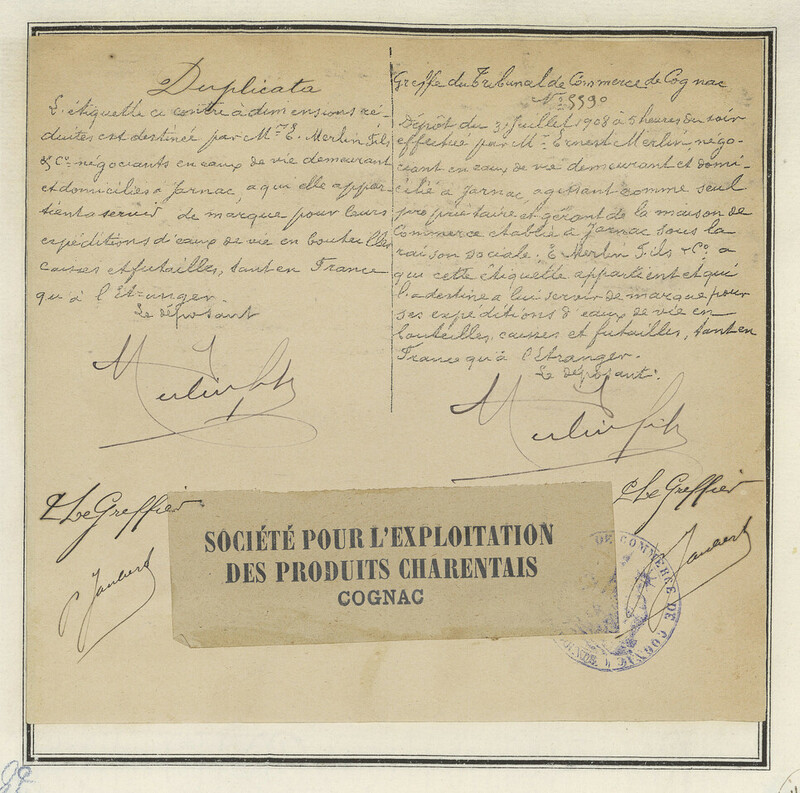 Duplicata
L'étiquette ci contre à dimensions ré-
duites est destinée par Mrs E. Merlin Fils
& Co. négociants en eaux de vie demeurant
et domiciliés à Jarnac, a qui elle appar-
tient a servir de marque pour leurs
expéditions d'eaux de vie en bouteilles
caisses et futailles, tant en France
qu'à l'Etranger.
Le déposant
Merlin fils
Le Greffier
p Jaubert
Greffe du Tribunal de Commerce de Cognac
No 5590
Dépôt du 3 Juillet 1908 à 5 heures du soir
effectué par Mr Ernest Merlin, négo-
ciant en eaux de vie demeurant et domi-
cilié à Jarnac, agissant comme seul
propriétaire et gérant de la maison de
Commerce établie à Jarnac sous la
raison sociale: E. Merlin Fils & Co. a
qui cette étiquette appartient et qui
l'a destine a lui servir de marque pour
ses expéditions d'eaux de vie en
bouteilles, caisses et futailles, tant en
France qu'à l'Etranger.
Le déposant.
Merlin fils
Le Greffier
Jaubert
SOCIÉTÉ POUR L'EXPLOITATION
DES PRODUITS CHARENTAIS
COGNAC
DE COMMERCE DE COGNAC